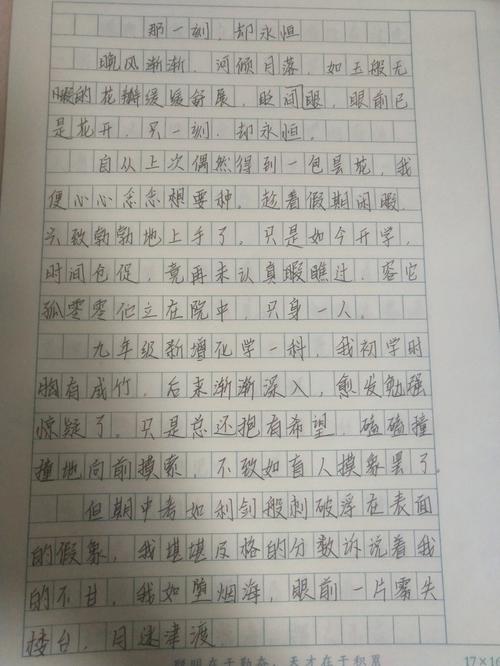 那一刻，却永恒
晚风渐渐，河倾月落，如玉般无
暇的花瓣缓缓舒展，眨间眼，眼前已
是花开，只一刻，却永恒。
自从上次偶然得到一包昙花，我
便心心念念想要种，趁着假期闲暇，
兴致勃勃地上手了，只是如今开学，
时间仓促，竟再未认真瞧过，容它
孤零零伫立在院中，只身一人。
九年级新增化学一科，我初学时
胸有成竹，后来渐渐深入，愈发勉强
惊疑了，只是总还抱有希望，磕磕撞
撞地向前摸索，不致如盲人摸象罢了。
但期中考如利剑般刺破浮在表面
的假象，我堪堪及格的分数诉说着我
的不甘，我如堕烟海，眼前一片雾失
楼台，月迷津渡
聪明在于勤奋，天才在于积累
17×16